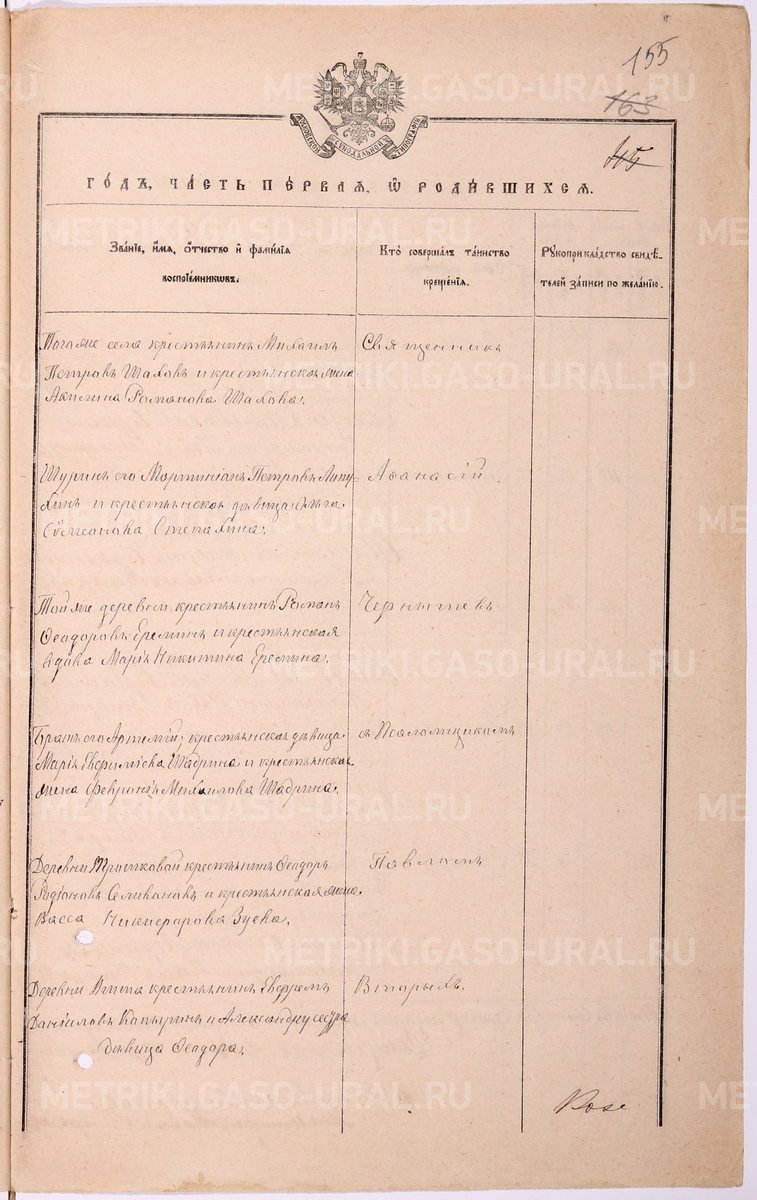 155
163
МОСКОВСКОЙ СѴНОДАЛЬНОЙ ТИПОГРАФІИ
ГОДЪ, ЧАСТЬ ПЕРВАЯ, Ѡ РОДИВШИХСЯ.
Званіе, имя, отчество и фамилія
воспріемникѡвъ.
Кто совершалъ таинство
крещенія.
Рукоприкладство свидѣ-
телей записи по желанію.
Того же села крестьянинъ Михаилъ
Петровъ Шаховъ и крестьянская жена
Акилина Романова Шахова.
Священникъ
Шуринъ его Мартиніанъ Петровъ
и крестьянская дѣвица Ольга
Сѵмеонова
Аѳанасій
Той же деревни крестьянинъ Романъ
Ѳеодоровъ Ереминъ и крестьянская
вдова Марія Никитина Еремина.
Чернышевъ
Братъ его Артемій, крестьянская дѣвица
Марія Евфиміева Шадрина и крестьянская
жена Февронія Михаилова Шадрина.
съ Псаломщикомъ
Деревни крестьянинъ Ѳеодоръ
Родіоновъ Селивановъ и крестьянская жена
Васса Никифорова Зуева.
Павломъ
Деревни крестьянинъ Евфремъ
Даніиловъ и Александру сестра
дѣвица Ѳеодора.
Вторыхъ.
METRIKI.GASO-URAL.RU